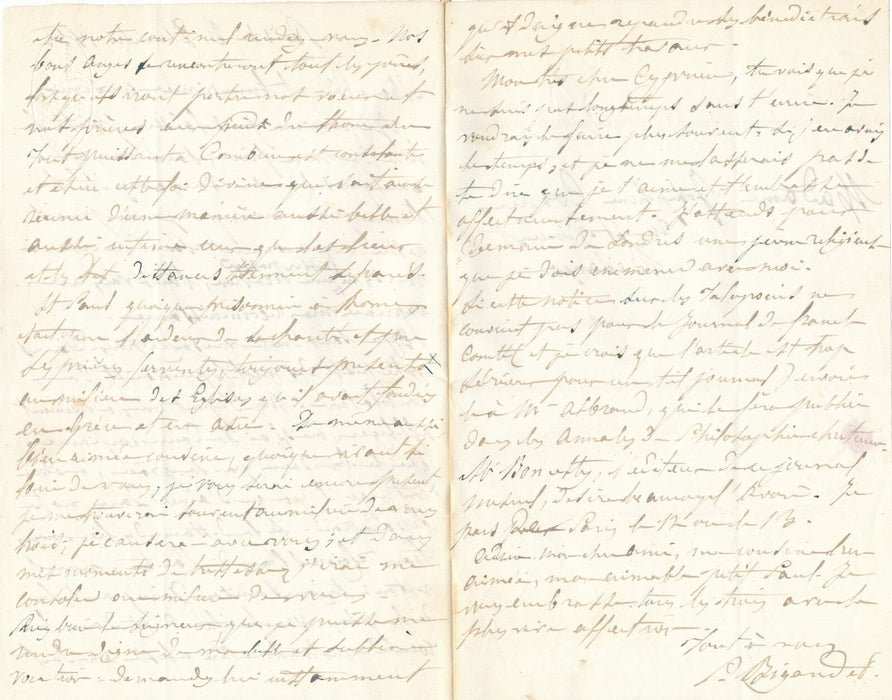 être notre continuel rendez-vous. Nos
bons anges se rencontreront, tous les jours,
lorsqu'ils iront porter nos vœux et
nos prières aux pieds du thrône du
Tout Puissant. Combien est consolante
et chère cette foi divine qui sait
d'une manière aussi belle et
aussi intime
et les distances
St Paul quoique prisonnier à Rome,
était par l'ardeur de sa charité et par
ses prières ferventes, toujours présent
au milieu des Eglises qu'il avait fondées
en Grèce et en Asie. De même aussi,
bien aimée cousine, quoique vivant si
loin de vous, je vous serai encore présent
je me trouverai souvent au milieu de vous
trois; je causerai avec vous; et dans
mes moments de tristesse j'irai me
consoler au milieu de vous.
Priez bien le Seigneur que je puisse me
rendre digne de ma belle et sublime
vocation. demandez lui instamment
qu'il daigne répandre des bénédictions
sur mes petits travaux.
Mon très cher Cyprien, tu vois que je
ne suis pas longtemps sans t'écrire. Je
voudrais le faire plus souvent, si j'en avais
le temps, et je ne me lasserais pas de
te dire que je t'aime et t'embrasse
affectueusement. J'attends pour
demain de Londres une jeune religieuse
que je dois emmener avec moi.
Si cette notice sur les Talapoins ne
convient pas pour le Journal de franche
Comté (et je crois que l'article est trop
sérieux pour un tel journal) envoie
le à Mr Albrand, qui le fera publier
dans les Annales de Philosophie chrétienne
Mr Bonnetty, l'éditeur de ce journal
mensuel, désire beaucoup l'avoir. Je
pars Paris le 12 ou le 13.
Adieu mon cher ami, ma cousine bien
aimée, mon aimable petit Paul. Je
vous embrasse tous les trois avec la
plus vive affection.
Tout à vous
P. Bigandet.